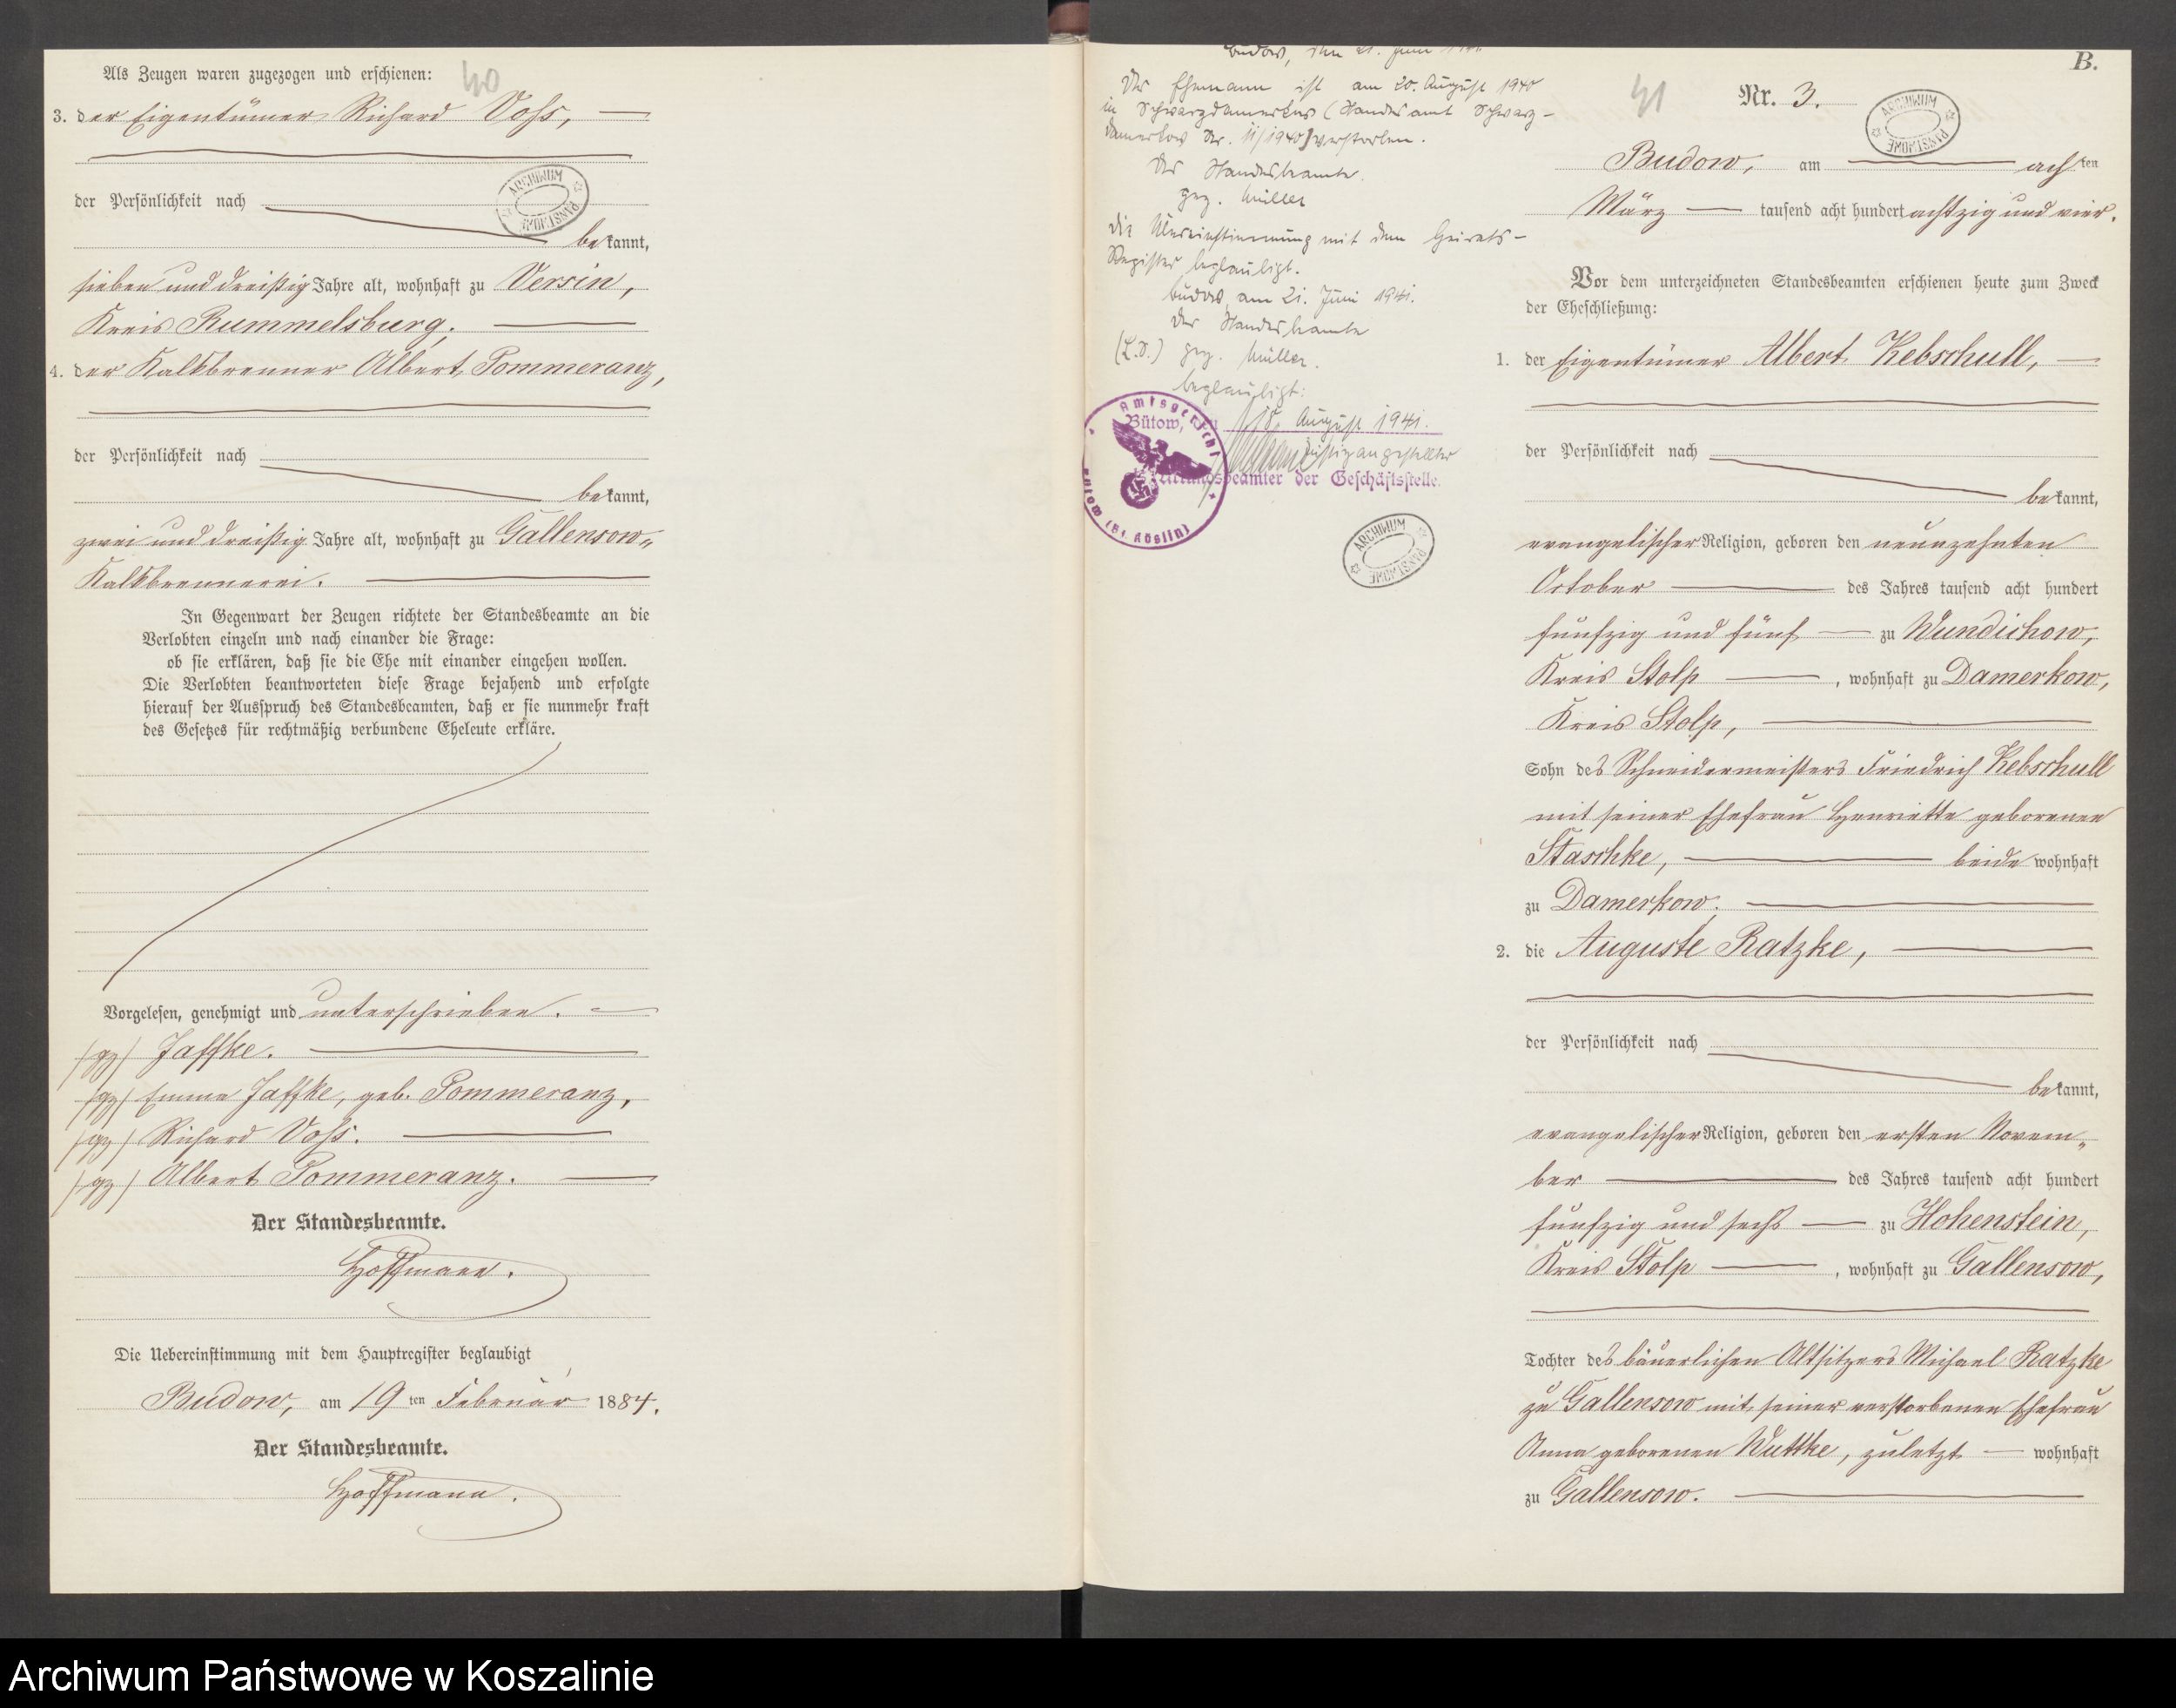 40
Als Zeugen waren zugezogen und erschienen:
3. der Eigentümer Richard Voss,
der Persönlichkeit nach
bekannt,
sieben und dreißig Jahre alt, wohnhaft zu Versin,
Kreis Rummelsburg.
4. der Kalkbrenner Albert Pommeranz,
der Persönlichkeit nach
bekannt,
zwei und dreißig Jahre alt, wohnhaft zu Gallensow-
Kalkbrennerei.
In Gegenwart der Zeugen richtete der Standesbeamte an die
Verlobten einzeln und nach einander die Frage:
ob sie erklären, daß sie die Ehe mit einander eingehen wollen.
Die Verlobten beantworteten diese Frage bejahend und erfolgte
hierauf der Ausspruch des Standesbeamten, daß er sie nunmehr kraft
des Gesetzes für rechtmäßig verbundene Eheleute erkläre.
Vorgelesen, genehmigt und unterschrieben.
/gz/ Jaffke.
/gz/ Emma Jaffke, geb. Pommeranz,
/gz/ Richard Voss.
/gz/ Albert Pommeranz.
Der Standesbeamte.
Hoffmann.
Die Uebereinstimmung mit dem Hauptregister beglaubigt
Budow, am 19 ten Februar 1884.
Der Standesbeamte.
Hoffmann.
ARCHIWUM PAŃSTWOWE
Budow, den 21. Juni 1941.
Der Ehemann ist am 20. August 1940
in Schwarzdamerkow (Standesamt Schwarz-
damerkow Nr. 11/1940) verstorben.
Der Standesbeamte.
gez. Müller
Die Übereinstimmung mit dem Heirats-
Register beglaubigt.
Budow, am 21. Juni 1941.
Der Standesbeamte
(L.S.) gez. Müller.
beglaubigt:
Bütow, 18. August 1941.
Justizangestellter
Urkundsbeamter der Geschäftsstelle.
Amtsgericht Bütow (Bz. Köslin)
ARCHIWUM PAŃSTWOWE
B.
41
Nr. 3.
ARCHIWUM PAŃSTWOWE
Budow, am achten
März tausend acht hundert achtzig und vier.
Vor dem unterzeichneten Standesbeamten erschienen heute zum Zweck
der Eheschließung:
1. der Eigentümer Albert Kebschull,
der Persönlichkeit nach
bekannt,
evangelischer Religion, geboren den neunzehnten
October des Jahres tausend acht hundert
fünfzig und fünf zu Wundichow,
Kreis Stolp, wohnhaft zu Damerkow,
Kreis Stolp,
Sohn des Schneidermeisters Friedrich Kebschull
mit seiner Ehefrau Henriette geborenen
Staschke, beide wohnhaft
zu Damerkow.
2. die Auguste Ratzke,
der Persönlichkeit nach
bekannt,
evangelischer Religion, geboren den ersten Novem-
ber des Jahres tausend acht hundert
fünfzig und sechs zu Hohenstein,
Kreis Stolp, wohnhaft zu Gallensow,
Tochter des bäuerlichen Altsitzers Michael Ratzke
zu Gallensow mit seiner verstorbenen Ehefrau
Anna geborenen Wuttke, zuletzt wohnhaft
zu Gallensow.
Archiwum Państwowe w Koszalinie